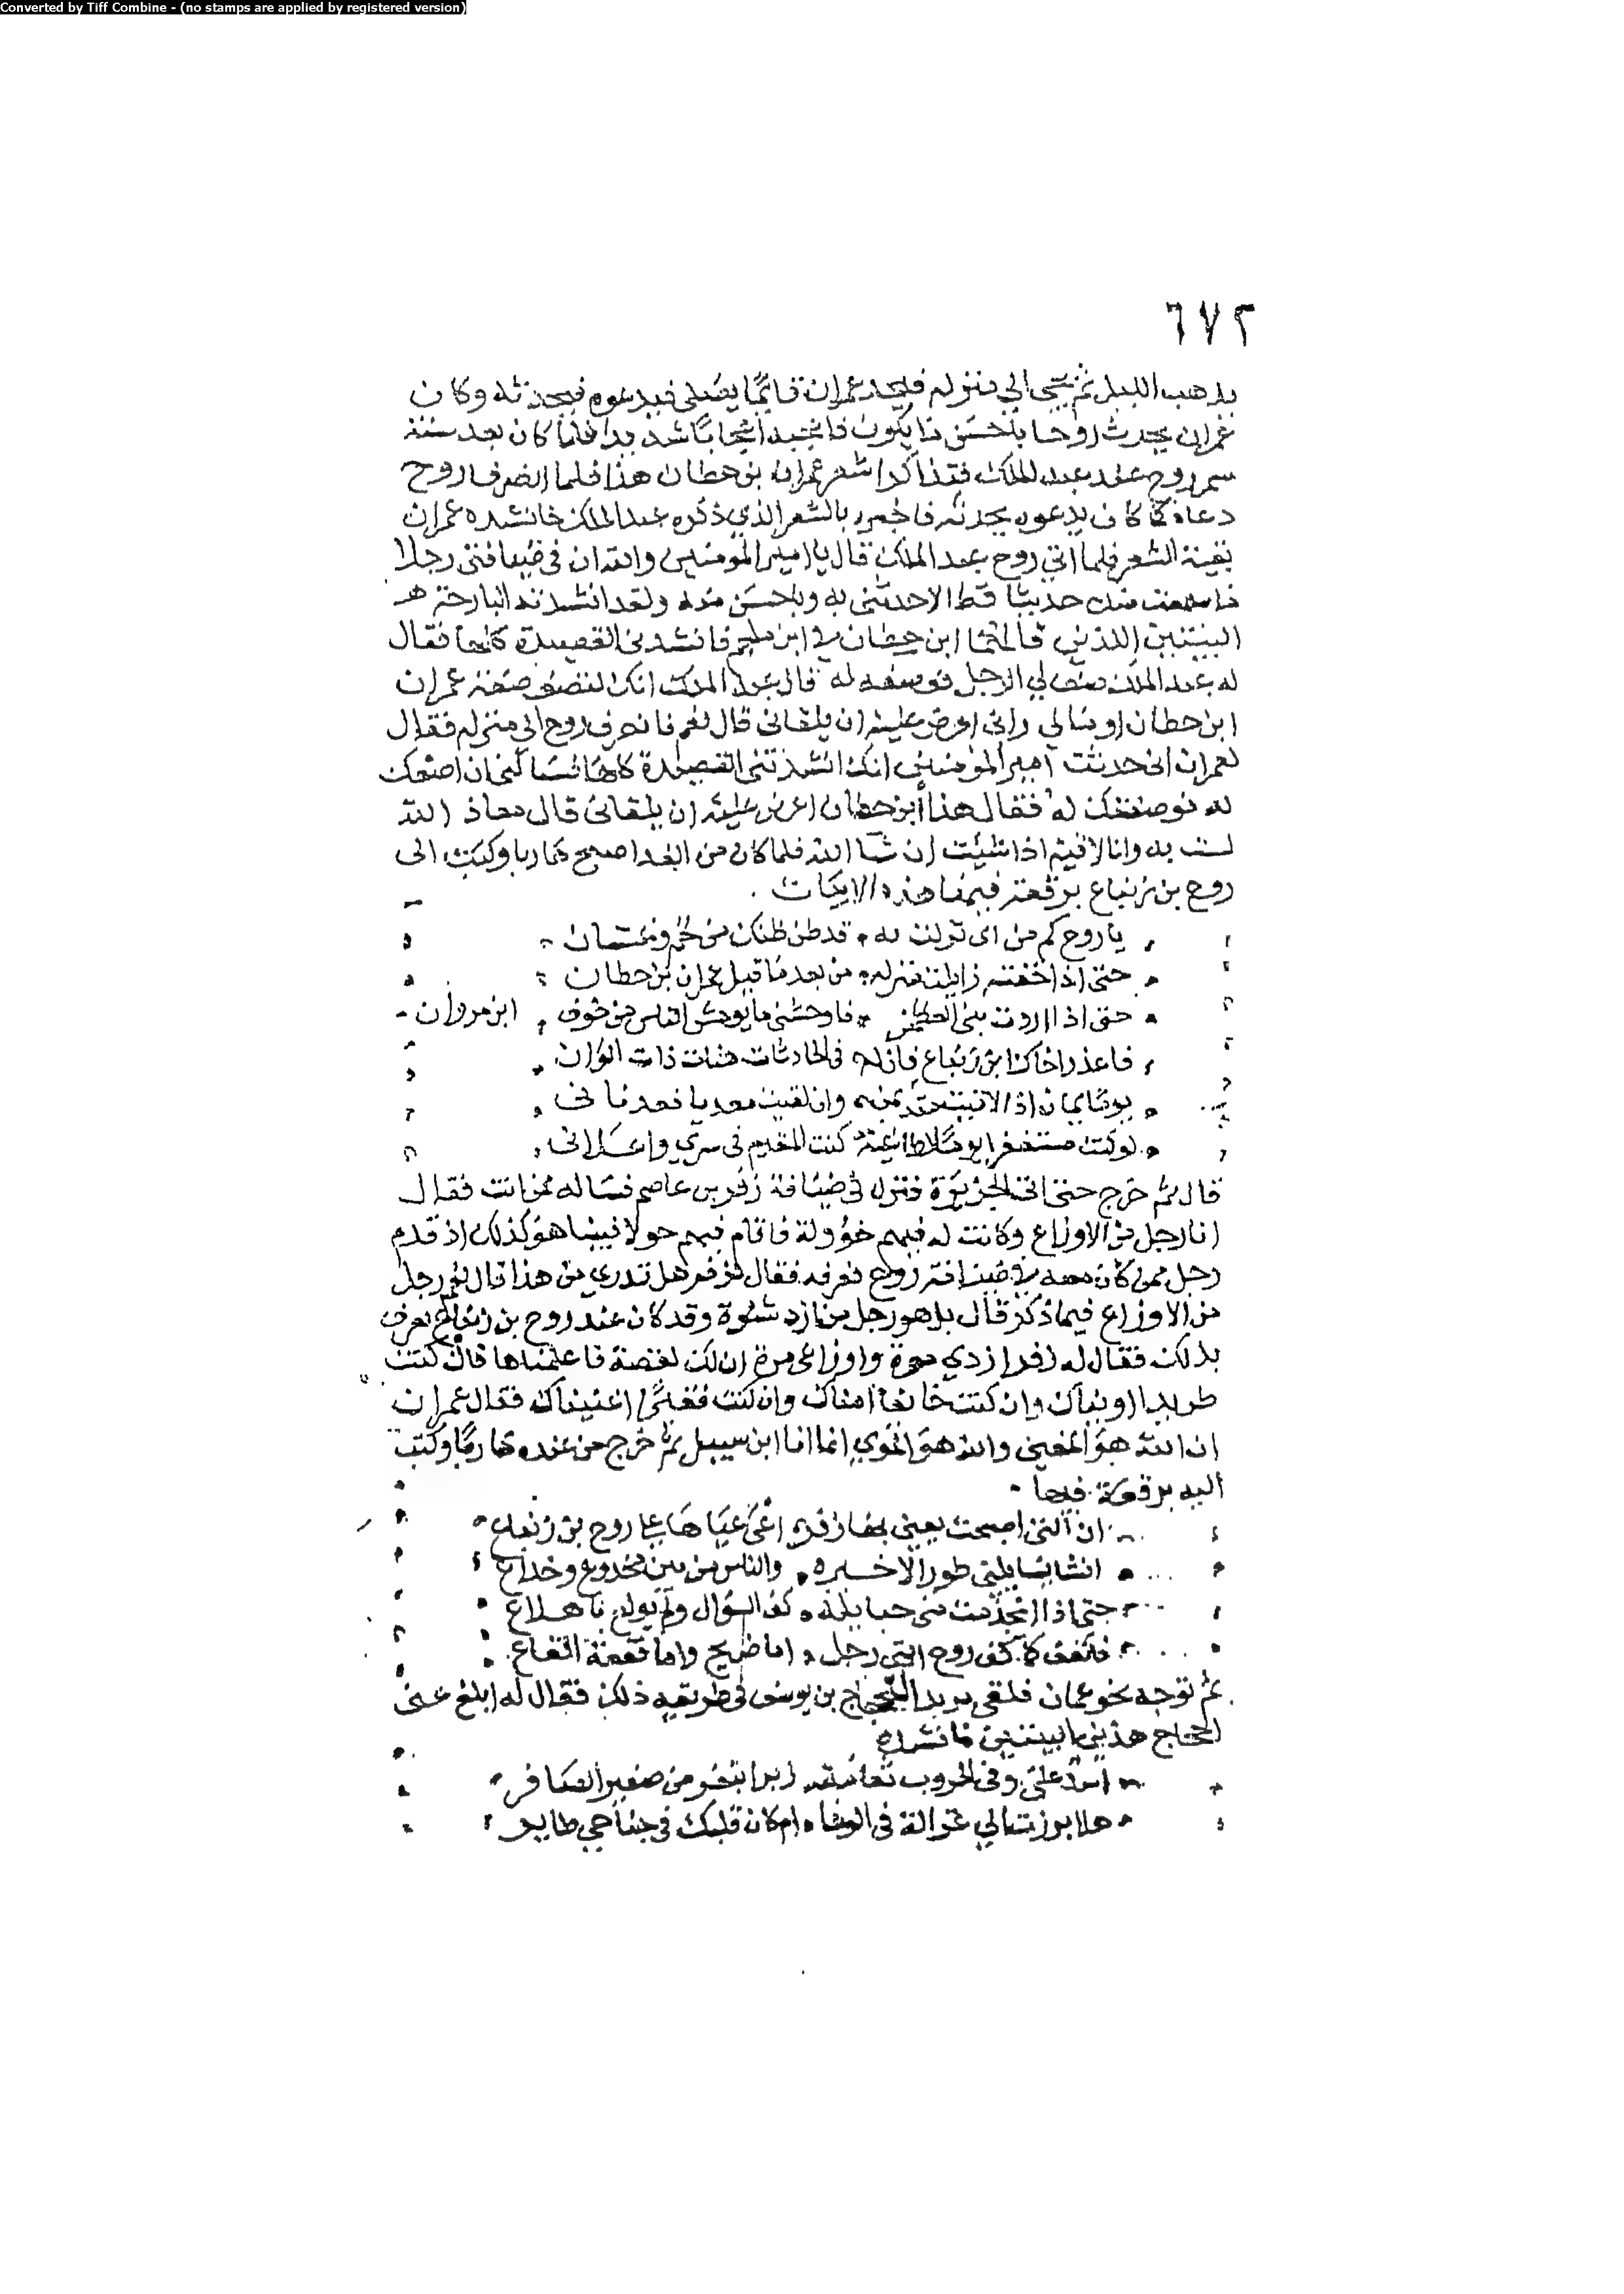 Converted by Tiff Combine - (no stamps are applied by registered version)
٦٧٢
يذهب الليل ثم يجي الي منزله فيجد عمران قايما يصلي فيدعوه فيحدثه وكان
عمران يحدث روحا باحسن ما يكون فاعجبه اعجابا شديدا فلما كان بعد سنة
سمر روح عند عبد الملك فتذاكرا شعر عمران بن حطان هذا فلما انصرف روح
دعاه كما كان يدعوه يحدثه فاخبره بالشعر الذي ذكره عبد الملك فانشده عمران
بقية الشعر فلما اتي روح عبد الملك قال يا امير المومنين والله ان في ضيافتي رجلا
ما سمعت منك حديثا قط الا حدثني به وباحسن منه ولقد انشدته البارحة
البيتين اللذين قالهما ابن حطان في ابن ملجم فانشدني القصيدة كلها فقال
له عبد الملك صف لي الرجل فوصفه له قال عبد الملك انك لتصف صفة عمران
ابن حطان اعرض عليه ان يلقاني قال نعم فانصرف روح الي منزله فقال
لعمران اني حدثت امير المومنين انك انشدتني القصيدة كلها فسالني ان اصفك
له فوصفتك له فقال هذا ابن حطان اعرض عليه ان يلقاني قال معاذ الله
لست به وانا لاقيه اذا شئت ان شا الله فلما كان من الغد اصبح هاربا وكتب الى
روح بن زنباع برقعة فيها هذه الابيات
يا روح كم من اى نزلت به قد ظن ظنك من لخم وغسان
حتى اذا خفته زايلت منزله من بعد ما قيل عمران بن حطان
فاوحشني ما يوحش الناس من خوف ابن مروان
فاعذر اخاك ابن زنباع فان له في الحادثات هنات ذات الوان
يوما يمان اذا لاقيت ذا يمن وان لقيت معديا فعدناني
لو كنت مستغفرا يوما لطاغية كنت المقدم في سري واعلاني
قال ثم خرج حتى اتى الجزيرة فنزل في ضيافة زفر بن عاصم فساله ممن انت فقال
انا رجل من الاوزاع وكانت له فيهم خؤولة فاقام فيهم حولا فبينا هو كذلك اذ قدم
رجل ممن كان معه في ضيافة روح فعرفه فقال لزفر هل تدري من هذا قال نعم رجل
من الاوزاع فيما ذكر قال بل هو رجل من ازد شنوة وقد كان عند روح بن زنباع يعرف
بذلك فقال له زفر ازدي مرة واوزاعي مرة ان لك لقصة فاعلمناها فان كنت
طريدا اويناك وان كنت خائفا امناك وان كنت اغنيناك فقال عمران
ان الله هو المغنى والله هو القوي انما انا ابن سبيل ثم خرج من عنده هاربا وكتب
اليه برقعة فيها
ان التى اصبحت يعيى بها زفر اعى عياها على روح بن زنباع
انشا يسايلني طورا لاخبره والناس من بين مخدوع وخداع
حتى اذا انجذمت منى حبايله كف السوال ولم يولع باهلاع
فاكفف كما كف روح انني رجل اما صميم واما فقعة القاع
ثم توجه نحو عمان فلقى بريد الحجاج بن يوسف في طريقه ذلك فقال له ابلغ عنى
الحجاج هذين البيتين فانشده
اسد علي وفي الحروب نعامة ربدا تنفر من صفير الصافر
هلا برزت الي غزالة في الوغا ام كان قلبك في جناحي طاير